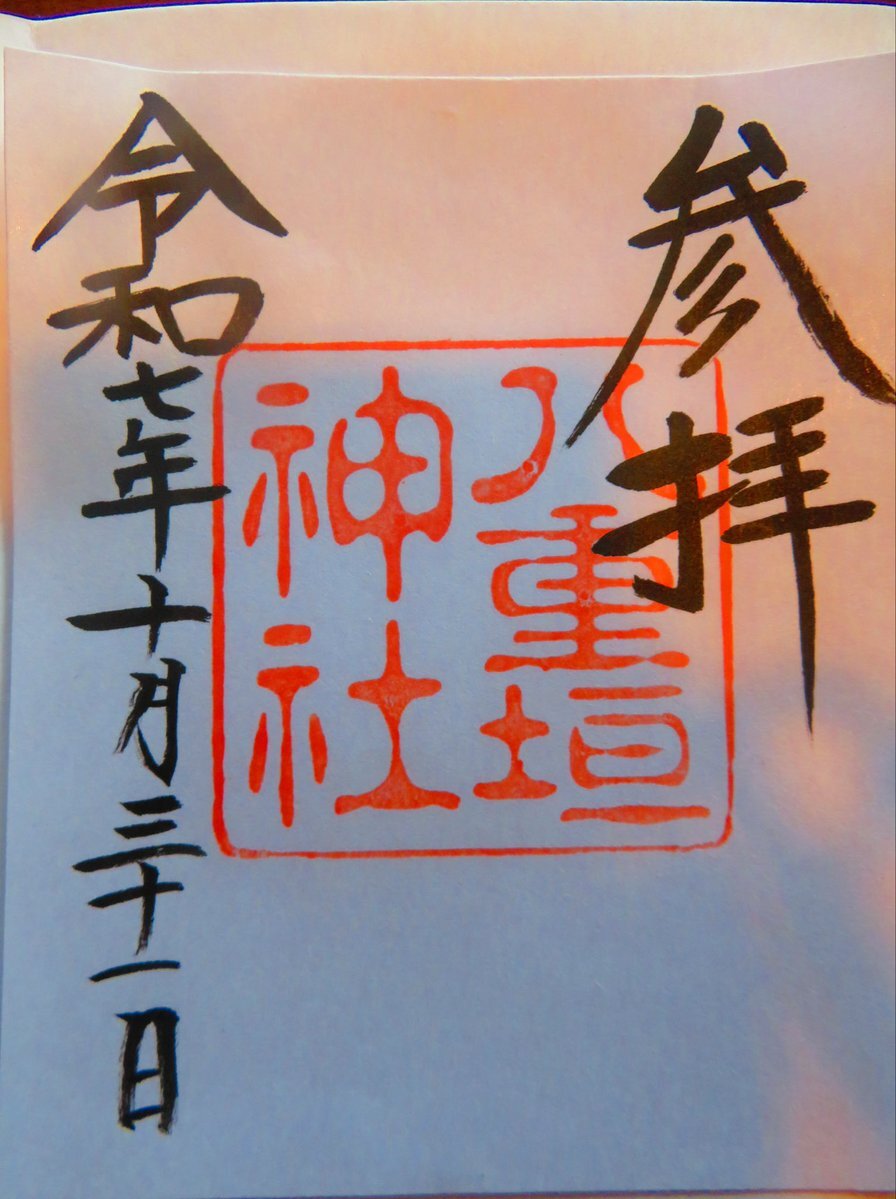 参拝
八重垣
神社
令和七年十月三十一日